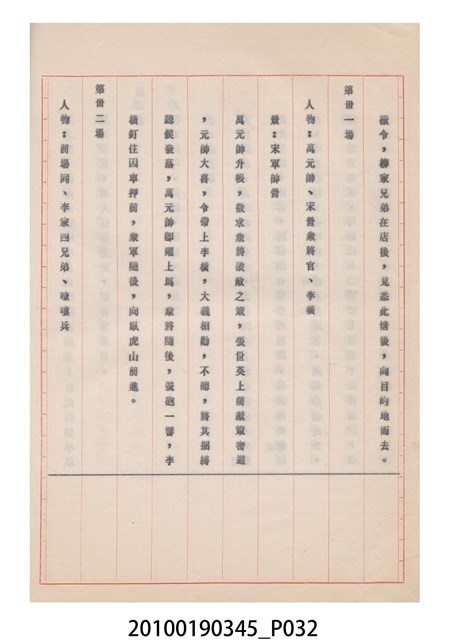 嶽令，柳家兄弟在店後，見悉此情後，向目的地而去。
第卅一場
人物：萬元帥、宋營衆將官、李橫
景：宋軍帥營
萬元帥升帳，徵求衆將破敵之策，張世英上前獻策密道
，元帥大喜，令帶上李橫，大義相勸，不聽，將其捆綁
聽候發落，萬元帥即題上馬，衆將隨後，號砲一響，李
橫釘住囚車押前，衆軍隨後，向臥虎山前進。
第卅二場
人物：前場同、李家四兄弟、嘍嘍兵
20100190345_P032